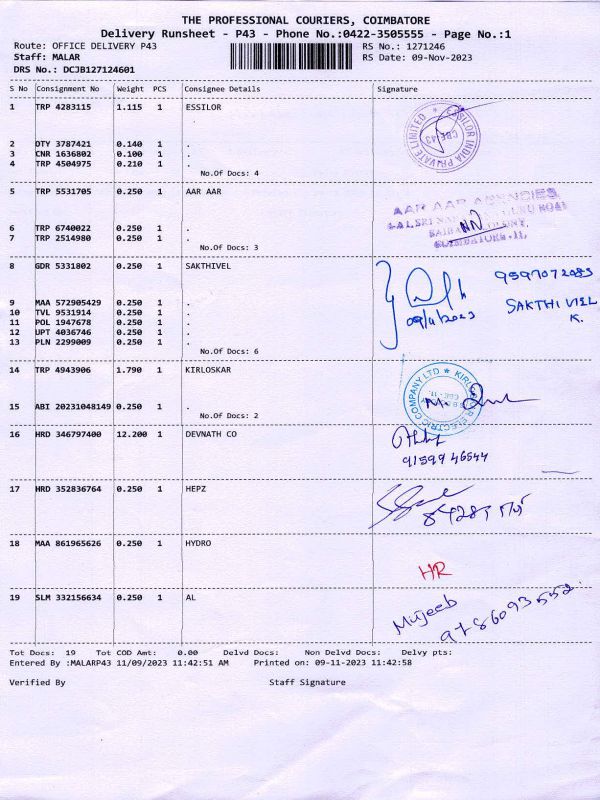 THE PROFESSIONAL COURIERS, COIMBATORE
Delivery Runsheet - P43 - Phone No.:0422-3505555 - Page No.:1
Route: OFFICE DELIVERY P43 RS No.: 1271246
Staff: MALAR RS Date: 09-Nov-2023
DRS No.: DCJB127124601
S No Consignment No Weight PCS Consignee Details Signature
1 TRP 4283115 1.115 1 ESSILOR
ESSILOR INDIA PRIVATE LIMITED
CBE-43
2 OTY 3787421 0.140 1 .
3 CNR 1636802 0.100 1 .
4 TRP 4504975 0.210 1 .
No.Of Docs: 4
5 TRP 5531705 0.250 1 AAR AAR
AAR AAR AGENCIES
COIMBATORE-11.
6 TRP 6740022 0.250 1 .
7 TRP 2514980 0.250 1 .
No.Of Docs: 3
8 GDR 5331802 0.250 1 SAKTHIVEL
9597072083
SAKTHIVEL
K.
09/11/2023
9 MAA 572905429 0.250 1 .
10 TVL 9531914 0.250 1 .
11 POL 1947678 0.250 1 .
12 UPT 4036746 0.250 1 .
13 PLN 2299009 0.250 1 .
No.Of Docs: 6
14 TRP 4943906 1.790 1 KIRLOSKAR
KIRLOSKAR ELECTRIC COMPANY LTD
15 ABI 20231048149 0.250 1 .
No.Of Docs: 2
16 HRD 346797400 12.200 1 DEVNATH CO
91599 46544
17 HRD 352836764 0.250 1 HEPZ
18 MAA 861965626 0.250 1 HYDRO
HR
19 SLM 332156634 0.250 1 AL
Mujeeb
9786093552
Tot Docs: 19 Tot COD Amt: 0.00 Delvd Docs: Non Delvd Docs: Delvy pts:
Entered By :MALARP43 11/09/2023 11:42:51 AM Printed on: 09-11-2023 11:42:58
Verified By Staff Signature